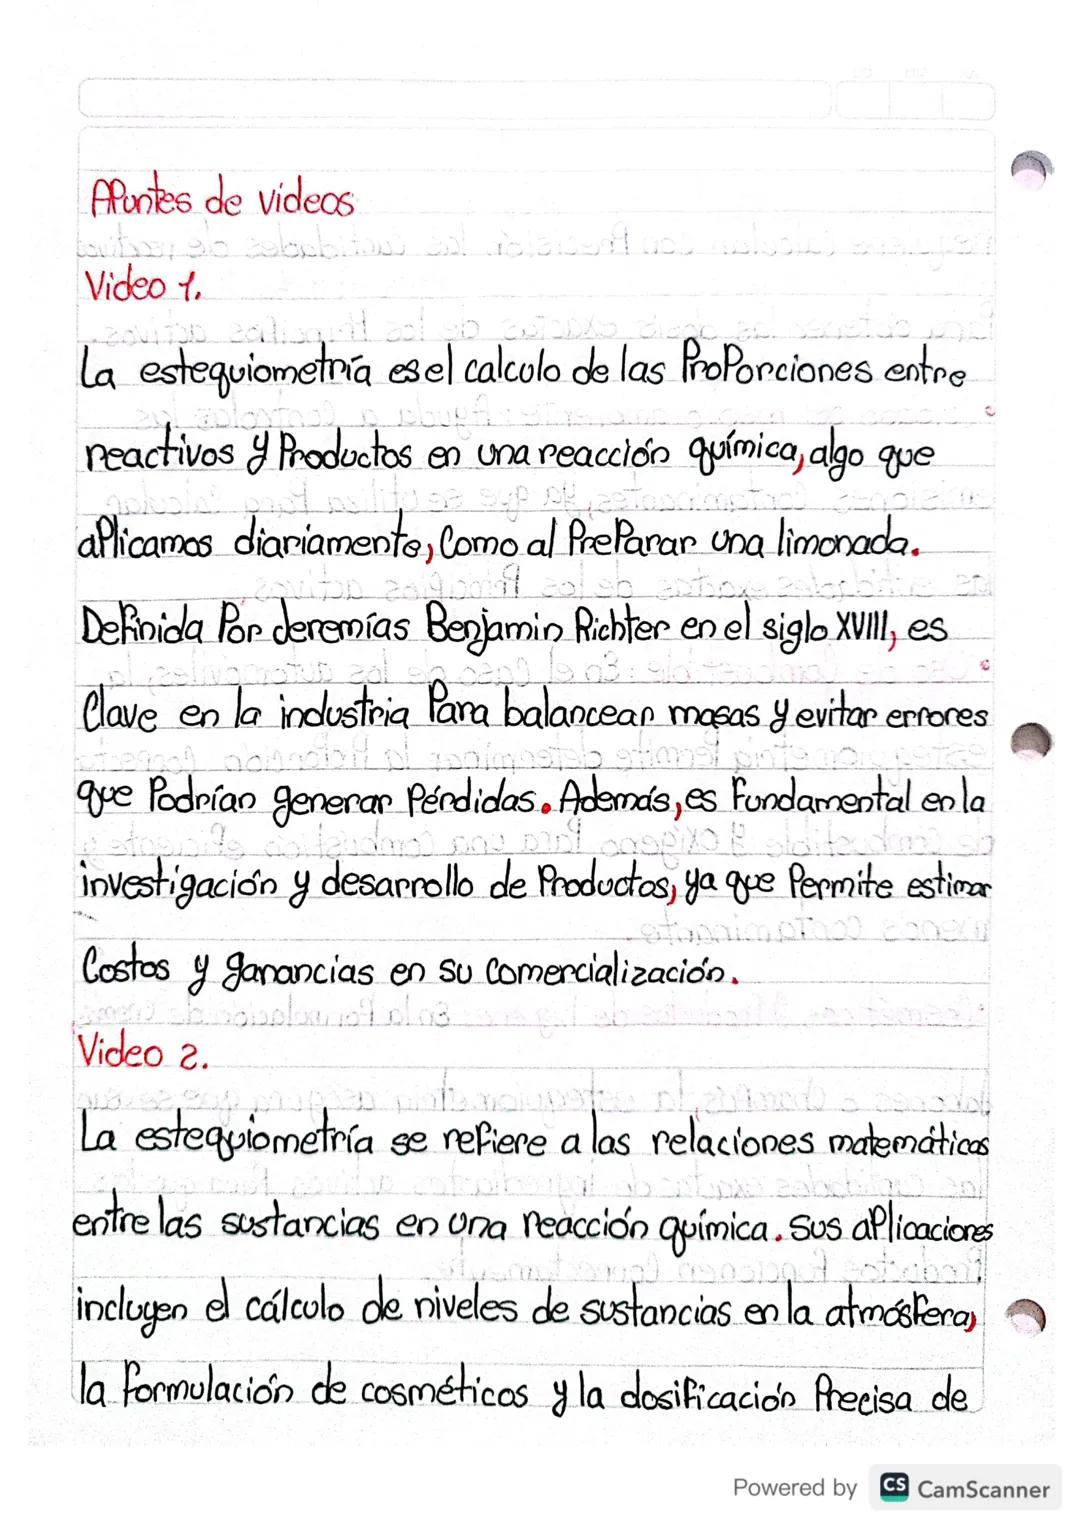 Apuntes de videos
Video 1.
La estequiometría es el calculo de las Proporciones entre
reactivos y Productos en una reacción química, algo que
aplicamos diariamente, Como al Preparar una limonada.
Definida Por Jeremías Benjamin Richter en el siglo XVIII, es
Clave en la industria Para balancear masas y evitar errores
que Podrían generar Pérdidas. Además, es Fundamental en la
investigación y desarrollo de Productos, ya que Permite estimar
Costos y ganancias en su comercialización.
Video 2.
La estequiometría se refiere a las relaciones matemáticas
entre las sustancias en una reacción química. Sus aplicaciones
incluyen el cálculo de niveles de sustancias en la atmósfera,
la formulación de cosméticos y la dosificación Precisa de
Powered by CS CamScanner